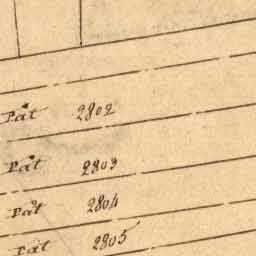 Pat 2802
Pat 2803
Pat 2804
Pat 2805